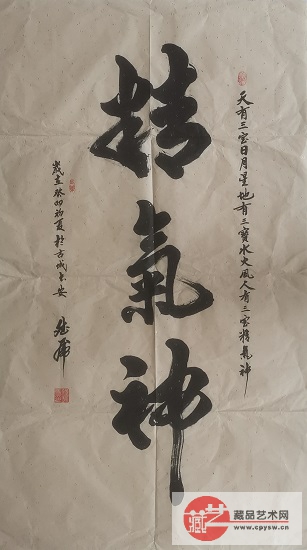 天有三宝日月星地有三寳水火风人有三宝精氣神
精氣神
岁在癸卯初夏於古城长安
藏品艺术网
www.cpysw.cn